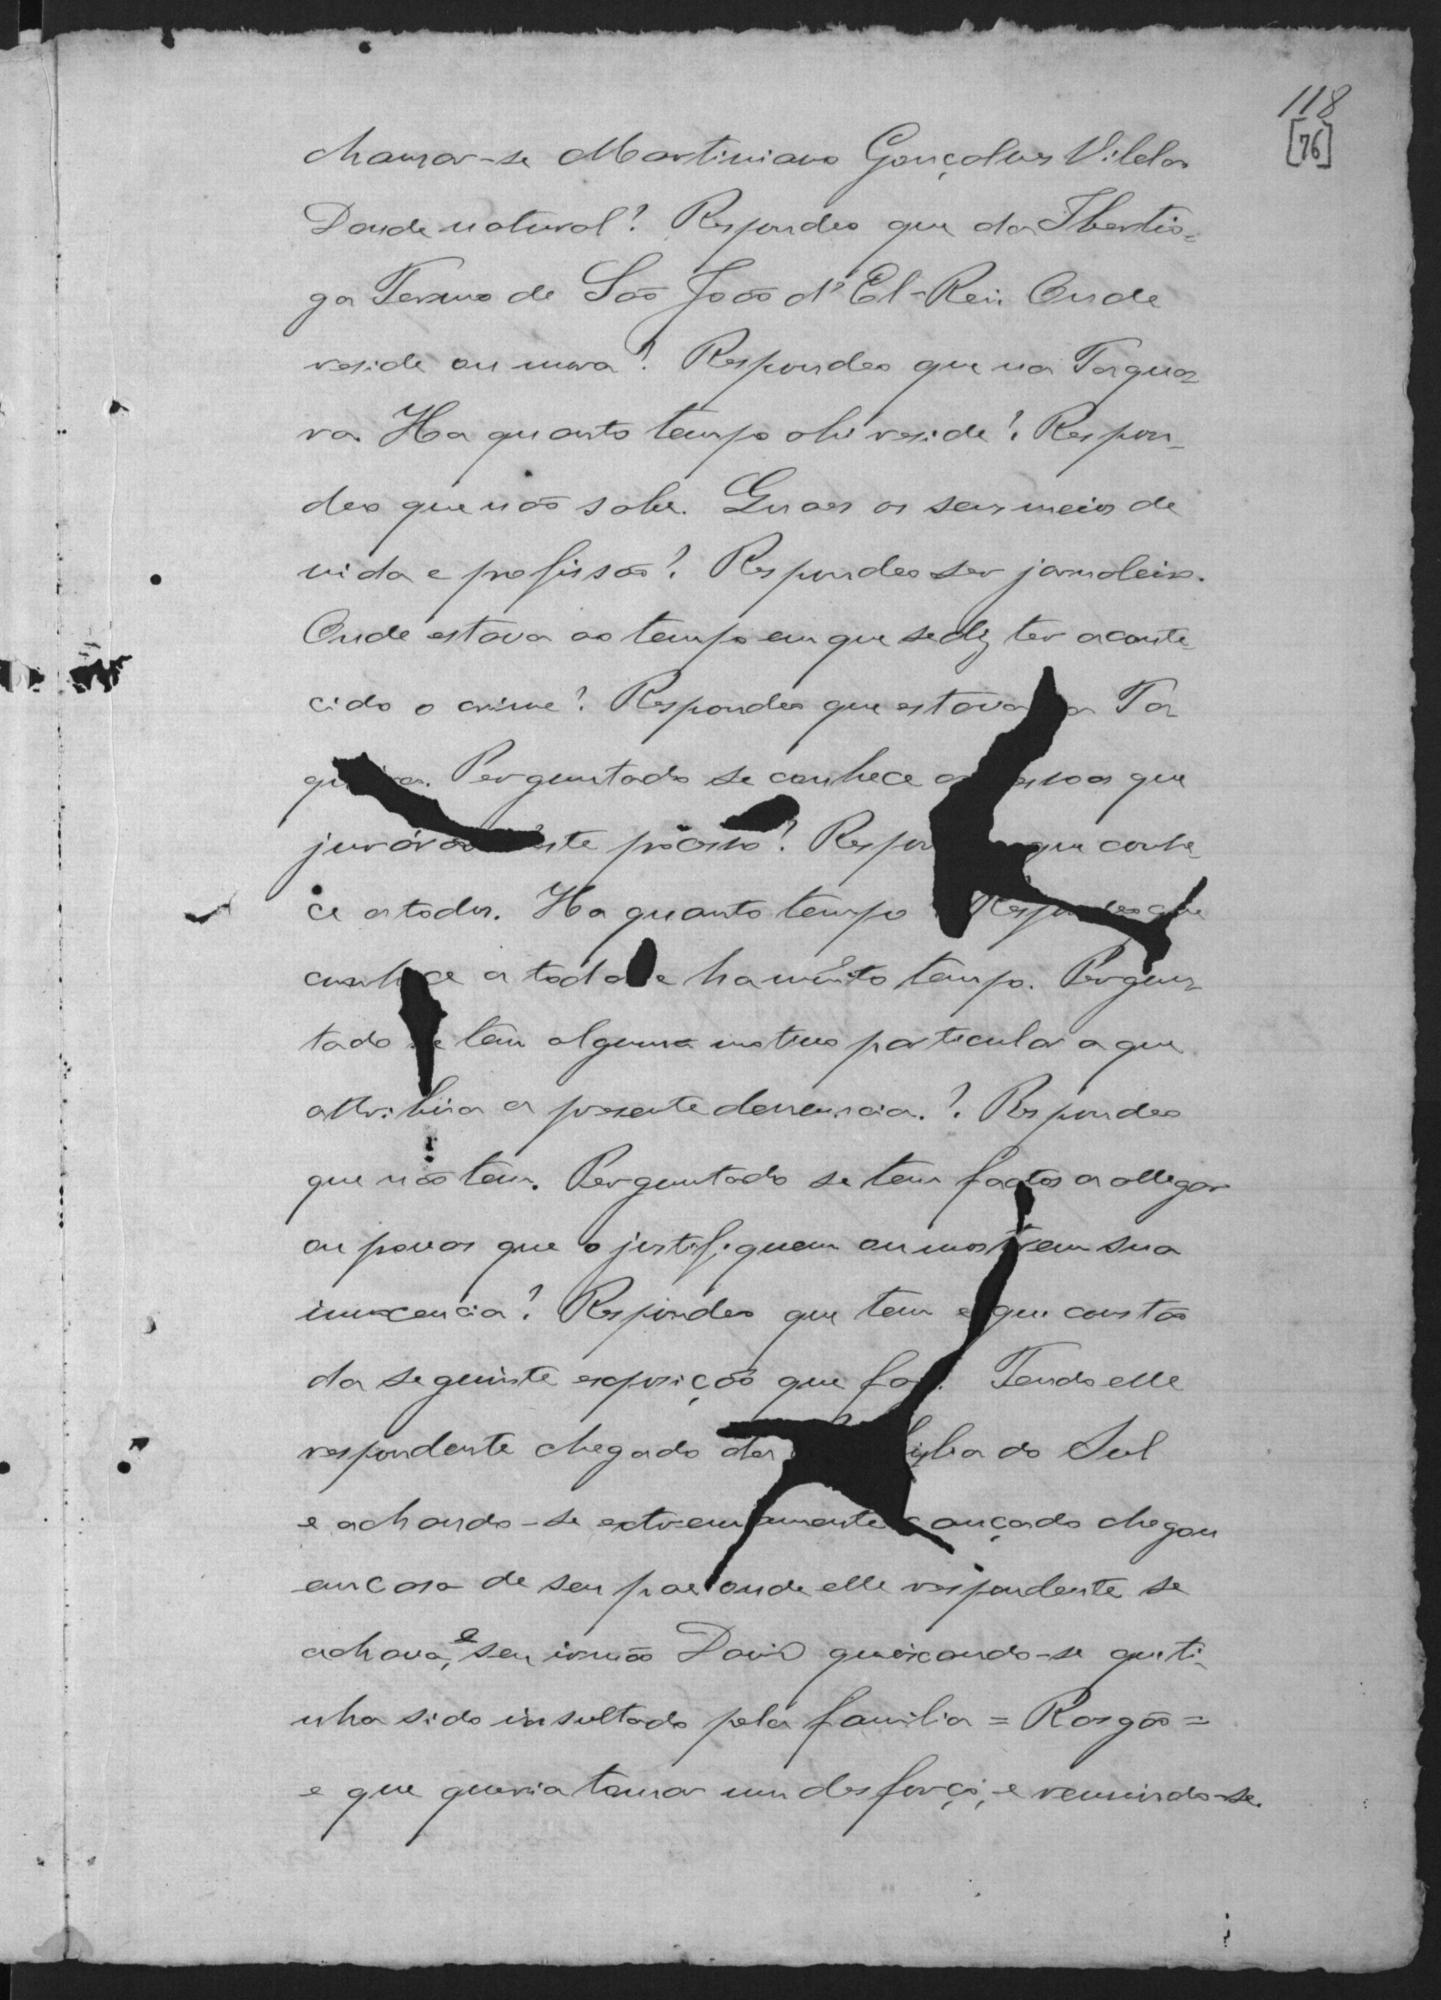 118
[76]
chamar-se Martiniano Gonçalves Vilela
Donde natural? Respondeo que da Ibertio-
ga Termo de São João d'El-Rei. Onde
reside ou mora? Respondeo que na Taqua
ra. Ha quanto tempo ahi reside? Respon-
deo que não sabe. Quaes os seus meios de
vida e profissão? Respondeo ser jornaleiro.
Onde estava ao tempo em que se diz ter aconte
cido o crime? Respondeo que estava a Ta
Perguntado se conhece as que
jurárão este processo? Respon que conhe
ce a todos. Ha quanto tempo Respondeo que
conhece a todos e ha muito tempo. Pergun
tado se tem algum motivo particular a que
attribua a presente denuncia.? Respondeo
que não tem. Perguntado se tem factos a allegar
ou provas que o justifiquem ou mostrem sua
innocencia? Respondeo que tem e que constão
da seguinte exposição que faz. Tendo elle
respondente chegado da do Sul
e achando-se extremamente cançado chegou
em casa de seu pae onde elle respondente se
achava, e seu irmão David queixando-se que ti-
nha sido insultado pela familia = Rasgão =
e que queria tomar um desforço, e reunindo-se